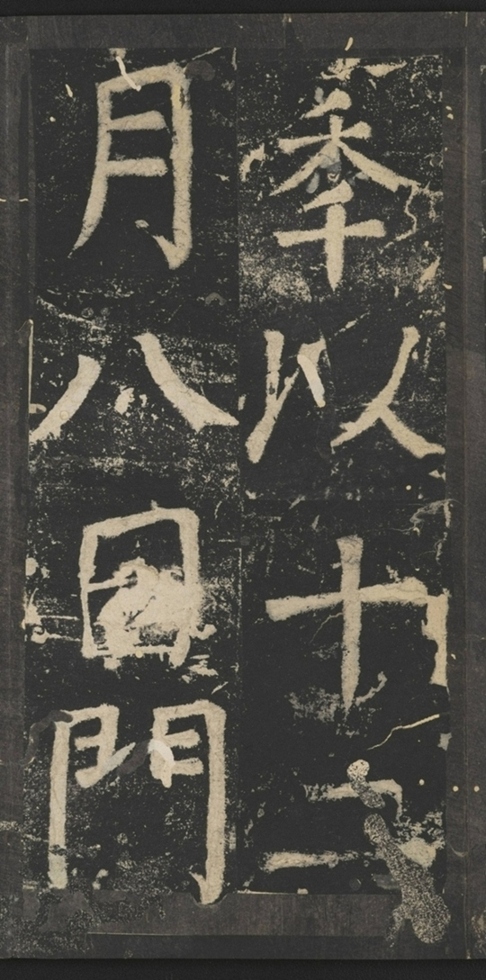 秊以十二
月八日門